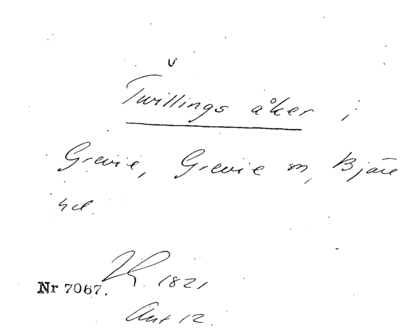 v
Twillings åker i
Grevie, Grevie sn, Bjäre
hd.
1821
Nr 7067.
Ant 12.